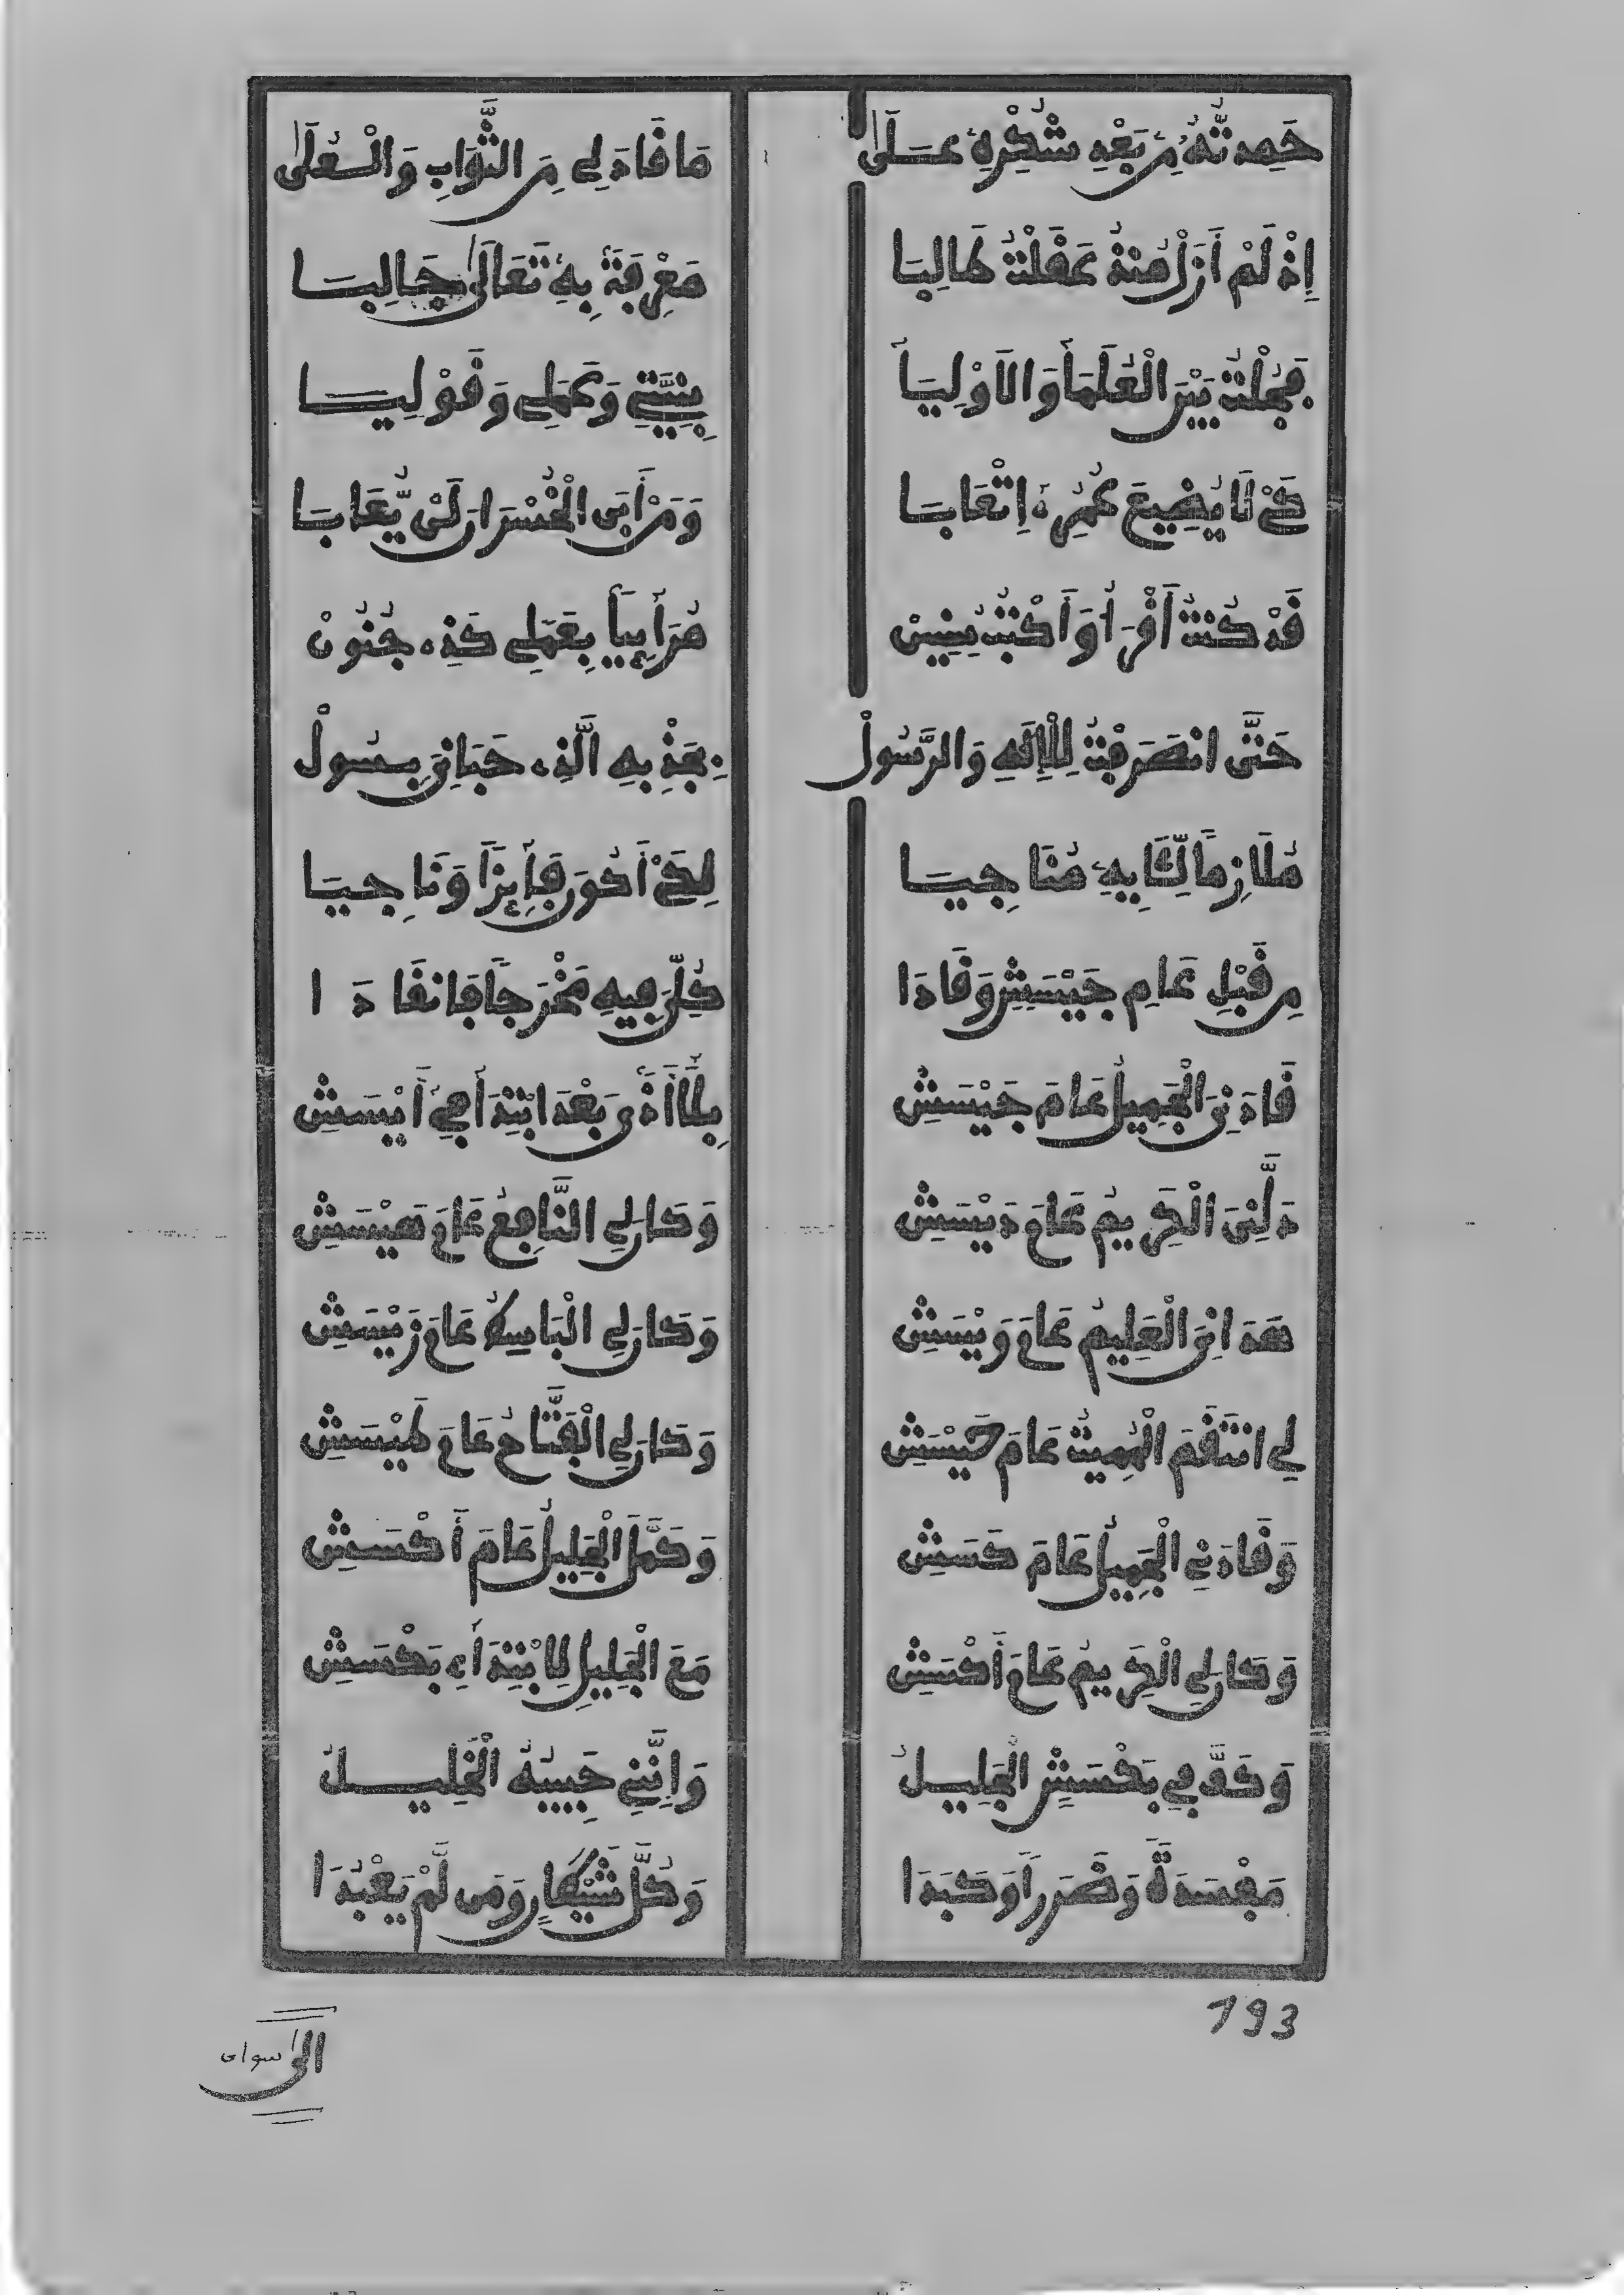 حَمِدتُّهُ مِن بَعْدِ شُكْرِهِ عَلَىٰ مَا قَادَ لِي مِنَ الثَّوَابِ وَالْعُلَىٰ
إِذْ لَمْ أَزَلْ مُنْذُ عَقَلْتُ طَالِبَا مَعْرِفَةً بِهِ تَعَالَىٰ جَالِبَا
فَجُلْتُ بَيْنَ الْعُلَمَا وَالَاوْلِيَا بِنِيَّتِي وَعَمَلِي وَقَوْلِيَا
كَيْ لَا يُضِيعَ عُمُرِي اِتْعَابَا وَمَنْ أَبَى الْخُسْرَانَ لَنْ يُّعَابَا
قَدْ كُنتُ أَقْرَأُ وَأَكْتُبُ سِنِينْ مُرَآئِياً بِعَمَلِي كَذِي جُنُونْ
حَتَّى انصَرَفْتُ لِلْإِلَٰهِ وَالرَّسُولْ بِجَذْبِهِ الَّذِي حَبَانِيَ بِسُولْ
مُلَازِماً لِّكَابِهِ مُنَاجِيَا لِكَيْ أَكُونَ فَآئِزاً وَنَاجِيَا
مِن قَبْلِ عَامِ جَيْسَشٍ وَقَادَا كُلِّيَ فِيهِ مَخْرَجاً فَانقَادَا
قَادَنِيَ الْجَمِيلُ عَامَ جَيْسَشِ بِلَآ أَذًى بَعْدَ ابْتِدَآءِ أَيْسَشِ
دَلَّنِيَ الْكَرِيمُ عَامَ دَيْسَشِ وَكَانَ لِي النَّافِعُ عَامَ هَيْسَشِ
هَدَانِيَ الْعَلِيمُ عَامَ وَيْسَشِ وَكَانَ لِي الْبَاسِطُ عَامَ زَيْسَشِ
لِي انتَقَمَ الْمُمِيتُ عَامَ حَيْسَشِ وَكَانَ لِي الْفَتَّاحُ عَامَ طَيْسَشِ
وَقَادَنِي الْجَمِيلُ عَامَ كَسَشِ وَكَمَّلَ الْجَلِيلُ عَامَ أَكْسَشِ
وَكَانَ لِي الْكَرِيمُ عَامَ أَكْسَشِ مَعَ الْجَلِيلِ لِابْتِدَآءِ بَكْسَشِ
وَكَفَّ فِي بَكْسَشٍ الْجَلِيلُ وَإِنَّنِي حَبِيبُهُ الْخَلِيلُ
مَفْسَدَةً وَضَرَراً وَكَبَدَا وَكُلَّ شَيْطَانٍ وَمَن لَّمْ يَعْبُدَا
193
الىٰ سواى